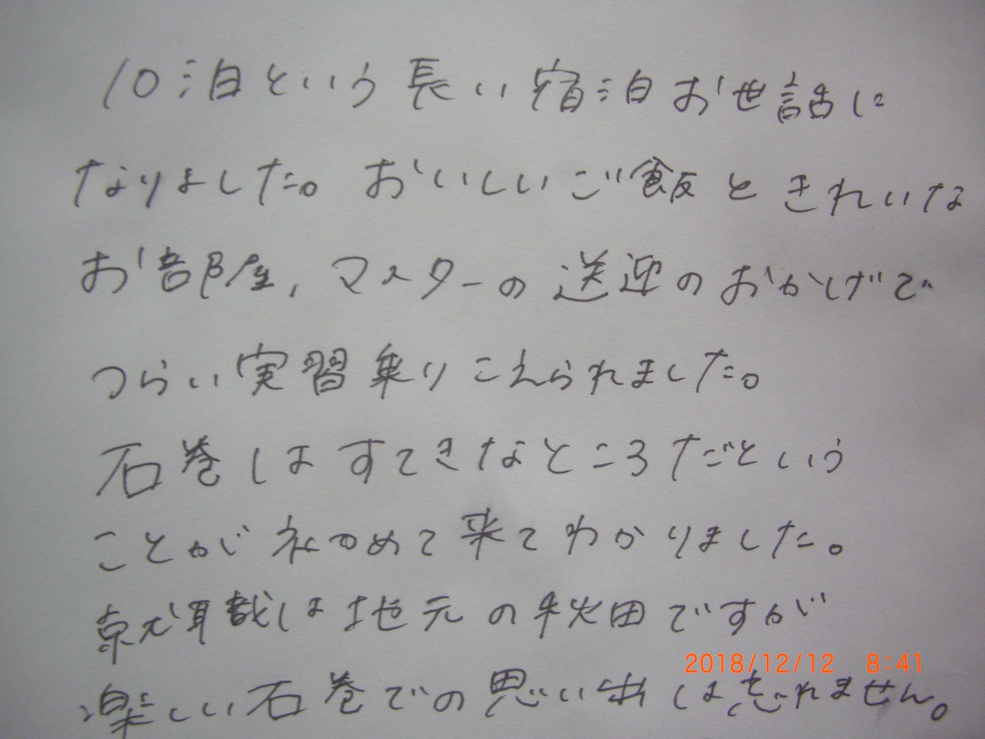 10泊という長い宿泊お世話に
なりました。おいしいご飯ときれいな
お部屋、マスターの送迎のおかげで
つらい実習乗りこえられました。
石巻はすてきなところだという
ことが初めて来てわかりました。
就職は地元の秋田ですが
2018/12/12 8:41
楽しい石巻での思い出は忘れません。